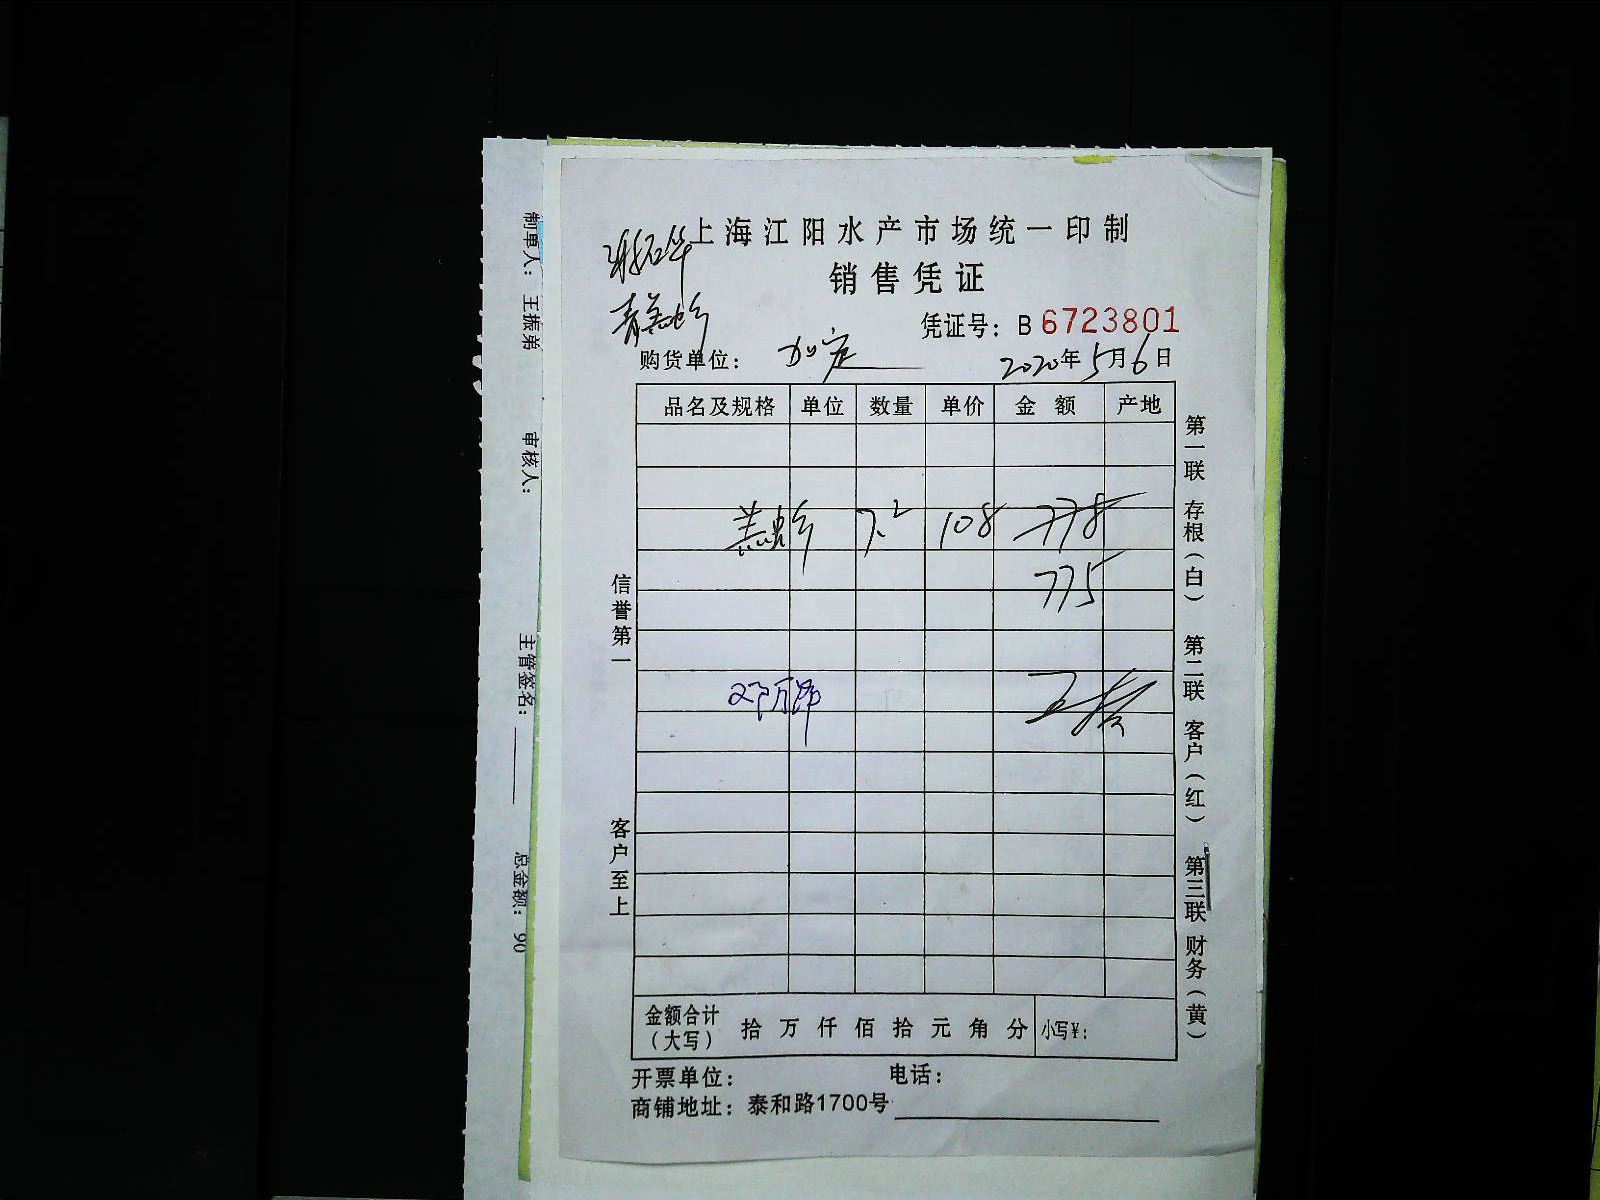 上海江阳水产市场统一印制
销售凭证
凭证号：B 6723801
购货单位：
2020年5月6日
品名及规格 单位 数量 单价 金额 产地
7.2 108 778
775
信誉第一
客户至上
第一联 存根（白） 第二联 客户（红） 第三联 财务（黄）
金额合计（大写） 拾 万 仟 佰 拾 元 角 分 小写¥：
开票单位： 电话：
商铺地址：泰和路1700号
制单人：王振弟 审核人： 主管签名： 总金额：90